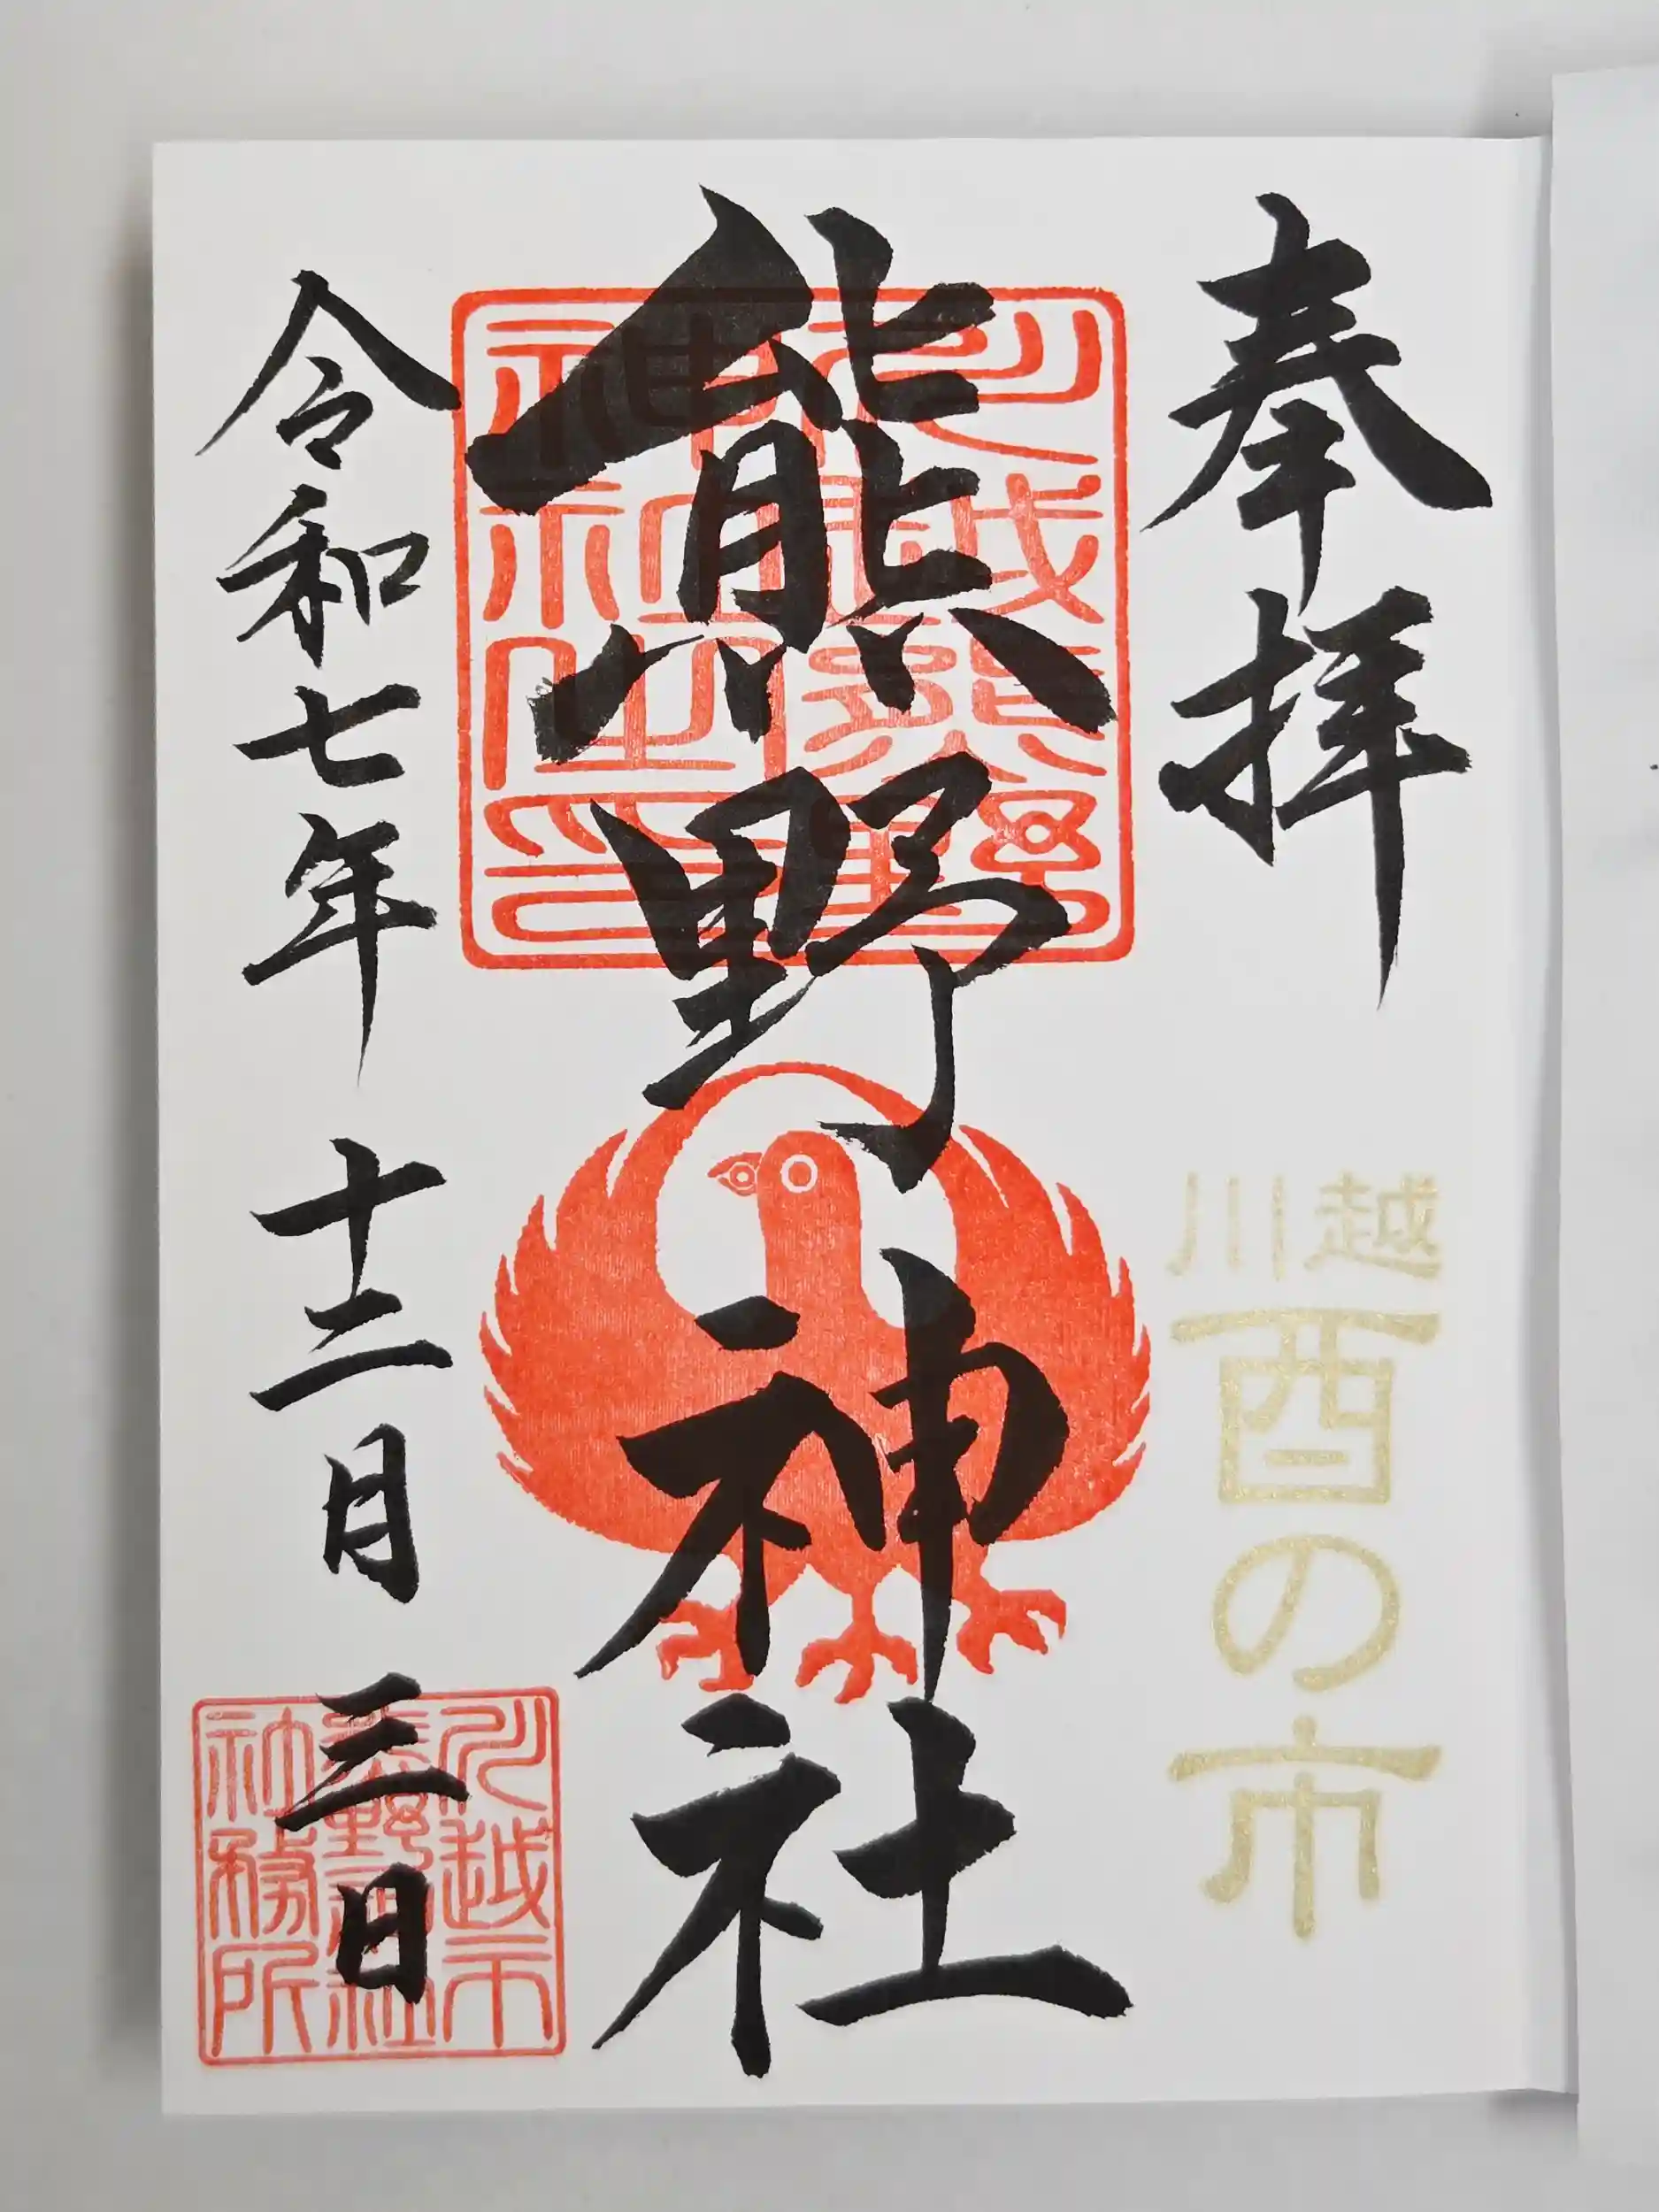 奉拝
川越
酉の市
熊野神社
川越熊野
神社之印
令和七年十二月三日
川越市
熊野神社
社務所